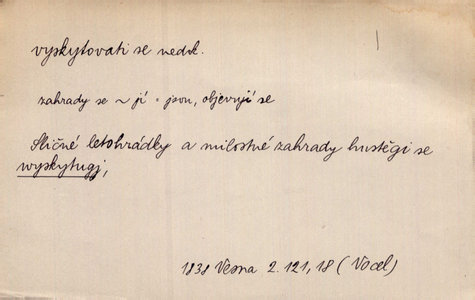 vyskytovati se nedok.
zahrady se ~ jí = jsou, objevují se
Sličné letohrádky a milostné zahrady hustěgi se
wyskytugj,
1838 Vesna 2.121,18 (Vocel)